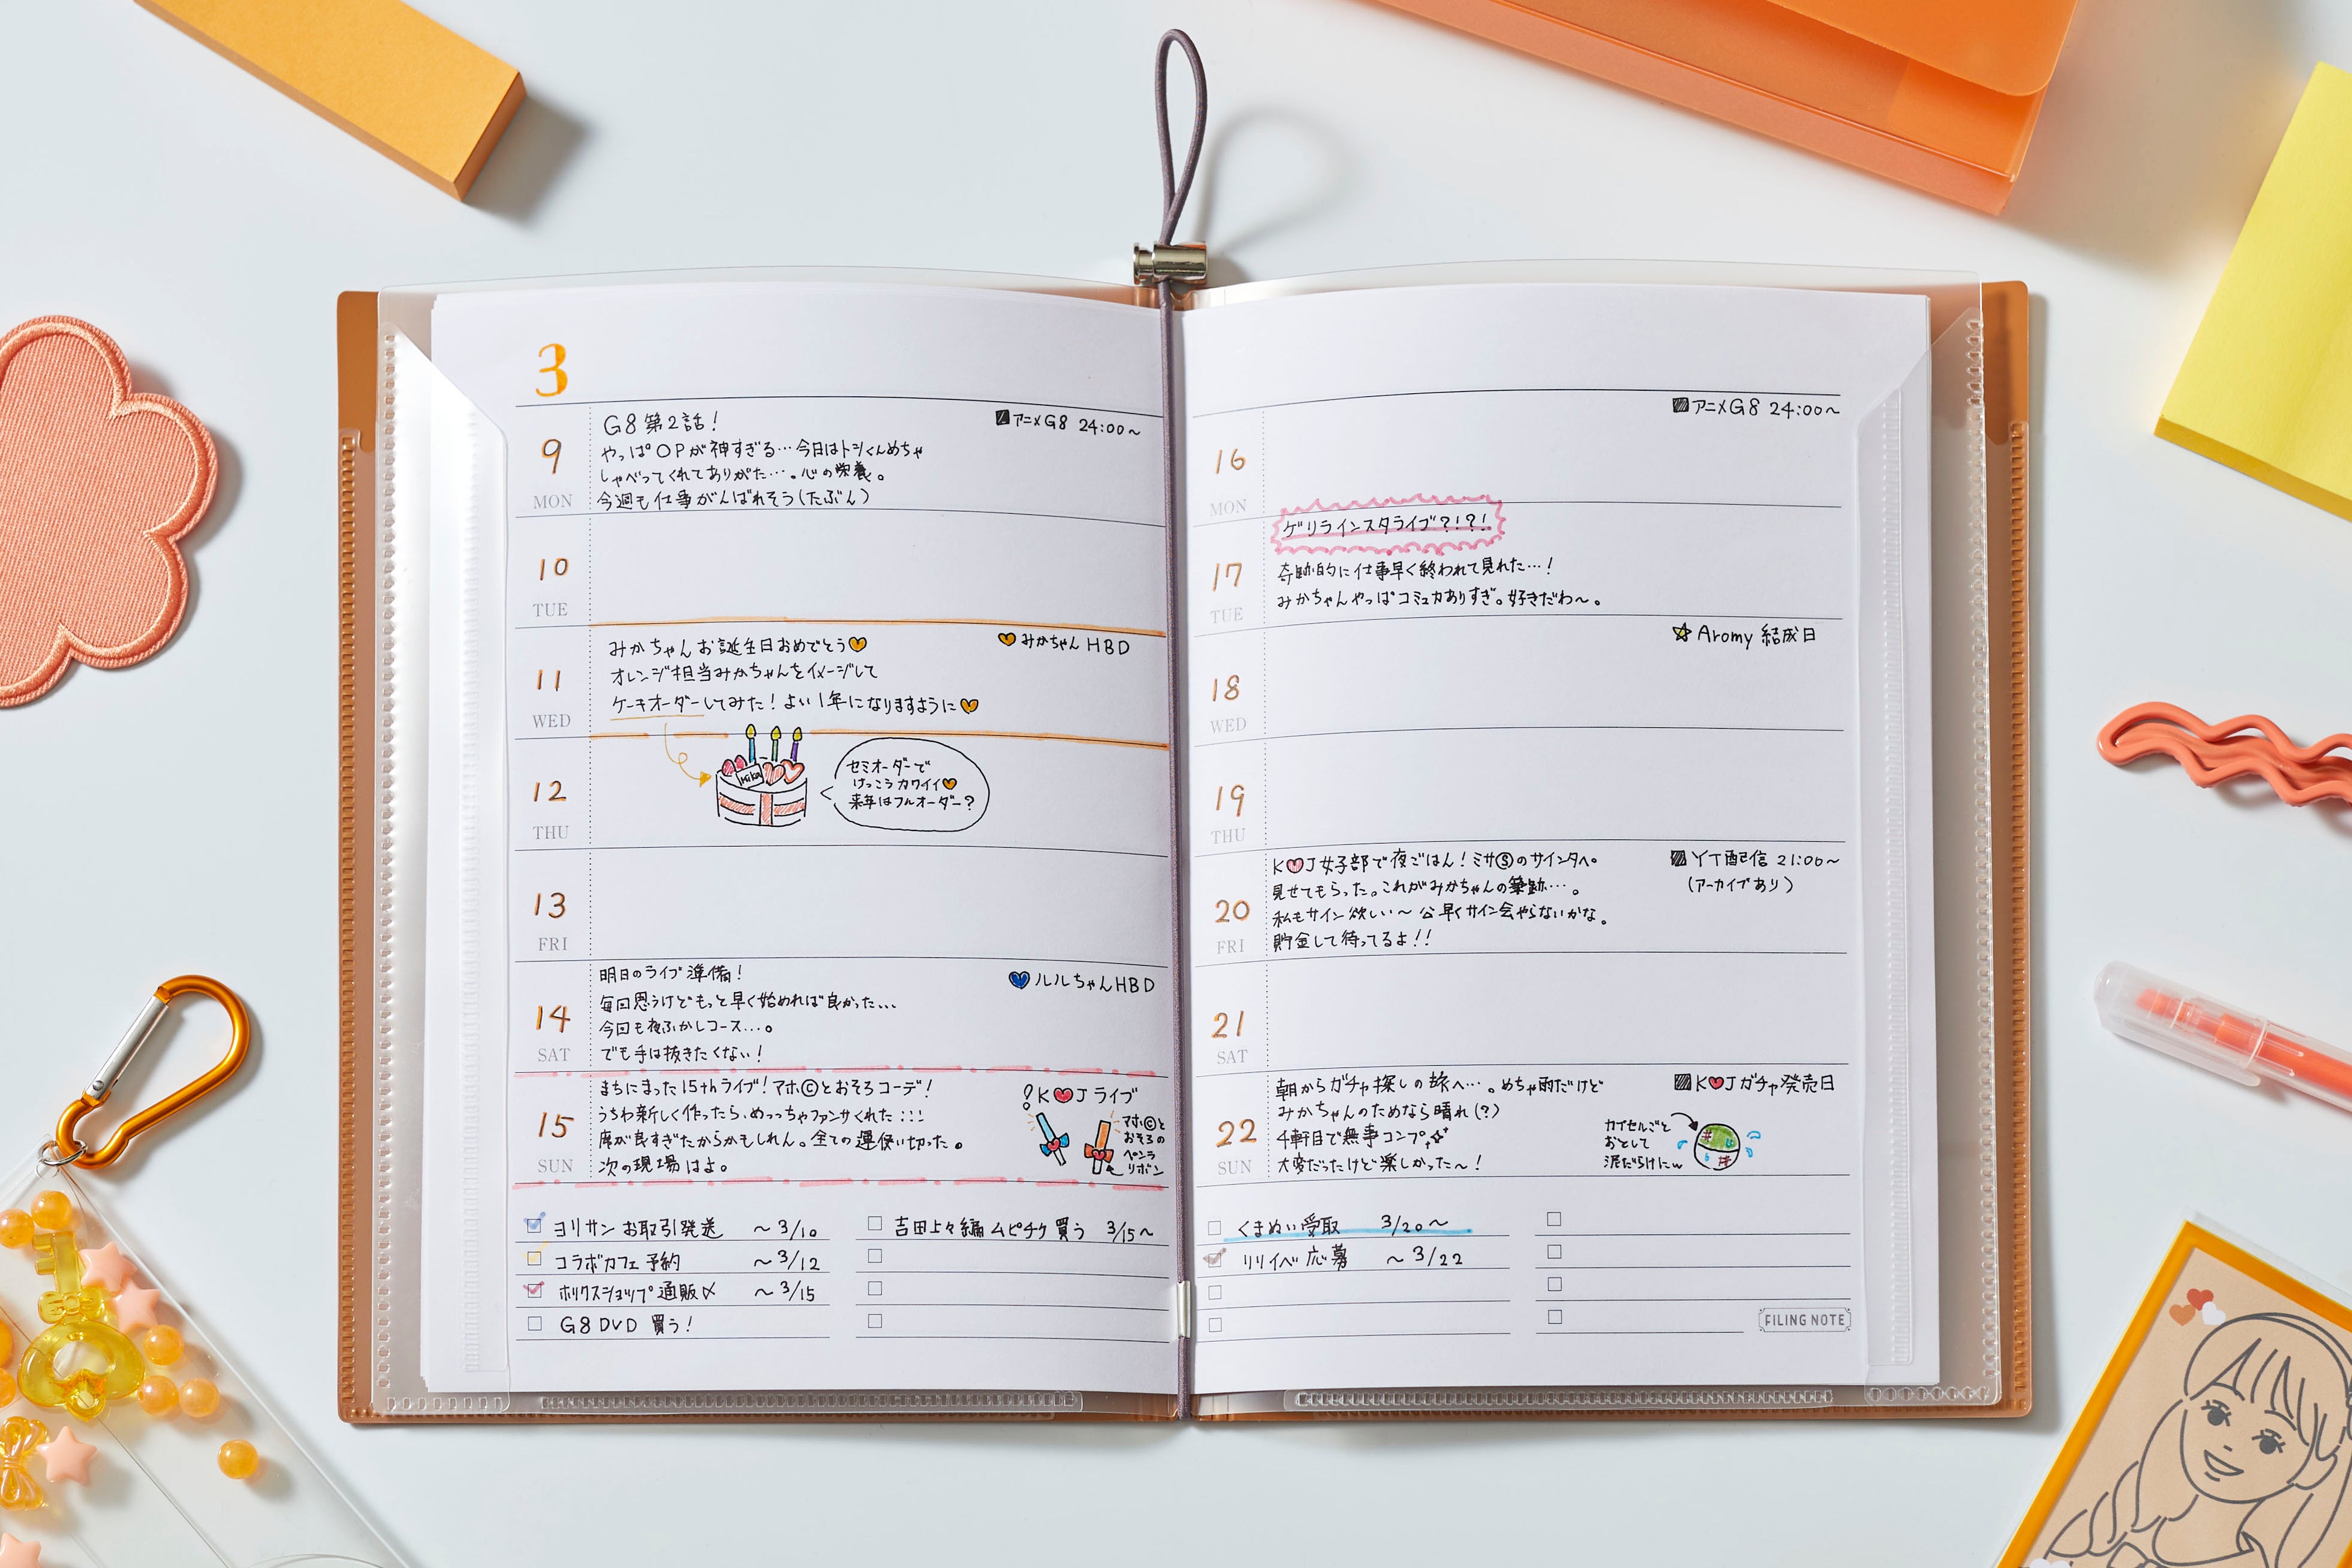 3
9
MON
G8 第2話!
■アニメG8 24:00～
やっぱOPが神すぎる…今日はトシくんめちゃ
しゃべってくれてありがた…。心の栄養。
今週も仕事がんばれそう(たぶん)
10
TUE
11
WED
みかちゃんお誕生日おめでとう🧡
🧡みかちゃんHBD
オレンジ担当みかちゃんをイメージして
ケーキオーダーしてみた!よい1年になりますように🧡
12
THU
Mika
セミオーダーで
けっこうカワイイ🧡
来年はフルオーダー?
13
FRI
14
SAT
明日のライブ準備!
💙ルルちゃんHBD
毎回思うけどもっと早く始めれば良かった...
今回も夜ふかしコース...。
でも手は抜きたくない!
15
SUN
まちにまった15thライブ!マホⒸとおそろコーデ!
うちわ新しく作ったら、めっっちゃファンサくれた:::
席が良すぎたからかもしれん。全ての運使い切った。
次の現場はよ。
K♥Jライブ
マホⒸと
おそろの
ペンラ
リボン
☑ ヨリサンお取引発送 ～3/10
☑ コラボカフェ予約 ～3/12
☑ ホリクスショップ通販〆 ～3/15
□ G8 DVD 買う!
□ 吉田上々編ムビチケ買う 3/15～
16
MON
■アニメG8 24:00～
17
TUE
ゲリラインスタライブ?!?!
奇跡的に仕事早く終われて見れた…!
みかちゃんやっぱコミュ力ありすぎ。好きだわ～。
18
WED
☆Aromy 結成日
19
THU
20
FRI
K♥J女子部で夜ごはん!ミサⓈのサイン入りへ。
■YT配信 21:00～
(アーカイブあり)
見せてもらった。これがみかちゃんの筆跡…。
私もサイン欲しい～ 早くサイン会やらないかな。
貯金して待ってるよ!!
21
SAT
22
SUN
朝からガチャ探しの旅へ…。めちゃ雨だけど
■K♥Jガチャ発売日
みかちゃんのためなら晴れ(?)
4軒目で無事コンプ✨
大変だったけど楽しかった～!
カプセルごと
おとして
泥だらけにw
□ くまぬい受取 3/20～
☑ リリイベ応募 ～3/22
FILING NOTE